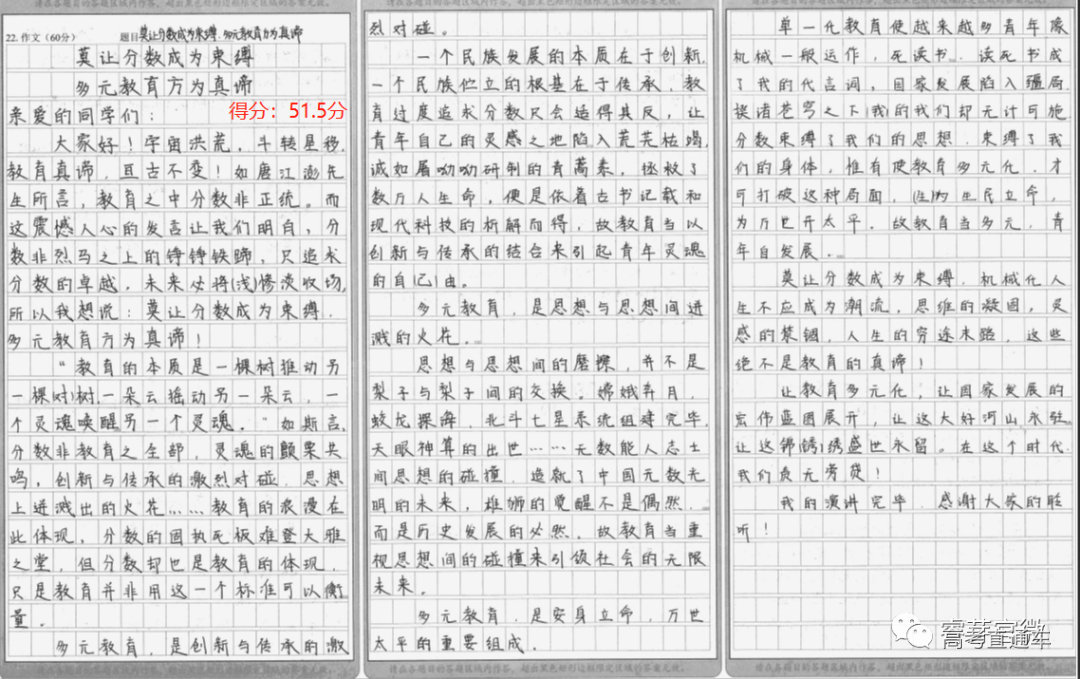 请在各题目的答题区域内作答，超出黑色矩形边框限定区域的答案无效。
22. 作文（60分）
题目 莫让分数成为束缚，多元教育方为真谛
莫让分数成为束缚
多元教育方为真谛
得分：51.5分
亲爱的同学们：
大家好！宇宙洪荒，斗转星移，
教育真谛，亘古不变！如唐江澎先
生所言，教育之中分数非正统。而
这震憾人心的发言让我们明白，分
数非烈马之上的铮铮铁蹄，只追求
分数的卓越，未来必将(浅)惨淡收场，
所以我想说：莫让分数成为束缚，
多元教育方为真谛！
“教育的本质是一棵树推动另
一棵树，一朵云摇动另一朵云，一
个灵魂唤醒另一个灵魂。”如斯言，
分数非教育之全部，灵魂的颤栗共
鸣，创新与传承的激烈对碰，思想
上迸溅出的火花……教育的浪漫在
此体现，分数的固执死板难登大雅
之堂，但分数却也是教育的体现，
只是教育并非用这一个标准可以衡
量。
多元教育，是创新与传承的激
烈对碰。
一个民族发展的本质在于创新，
一个民族伫立的根基在于传承，教
育过度追求分数只会适得其反，让
青年自己的灵感之地陷入荒芜枯竭，
诚如屠呦呦研制的青蒿素，拯救了
数万人生命，便是依着古书记载和
现代科技的析解而得，故教育当以
创新与传承的结合来引起青年灵魂
的自(己)由。
多元教育，是思想与思想间迸
溅的火花。
思想与思想间的磨擦，并不是
梨子与梨子间的交换，嫦娥奔月，
蛟龙探海，北斗七星系统组建完毕，
天眼神算的出世……无数能人志士
间思想的碰撞，造就了中国元数光
明的未来，雄狮的觉醒不是偶然，
而是历史发展的必然，故教育当重
视思想间的碰撞来引领社会的无限
未来。
多元教育，是安身立命，万世
太平的重要组成。
单一化教育使越来越多青年像
机械一般运作，死读书，读死书成
了我的代言词，国家发展陷入疆局，
揆诸苍穹之下(我)的我们却无计可施，
分数束缚了我们的思想，束缚了我
们的身体，惟有使教育多元化，才
可打破这种局面，为生民立命，
为万世开太平。故教育当多元，青
年自发展。
莫让分数成为束缚，机械化人
生不应成为潮流，思维的凝固，灵
感的禁锢，人生的穷途末路，这些
绝不是教育的真谛！
让教育多元化，让国家发展的
宏伟蓝图展开，让这大好河山永驻，
让这锦绣盛世永留。在这个时代，
我们责无旁贷！
我的演讲完毕，感谢大家的聆
听！